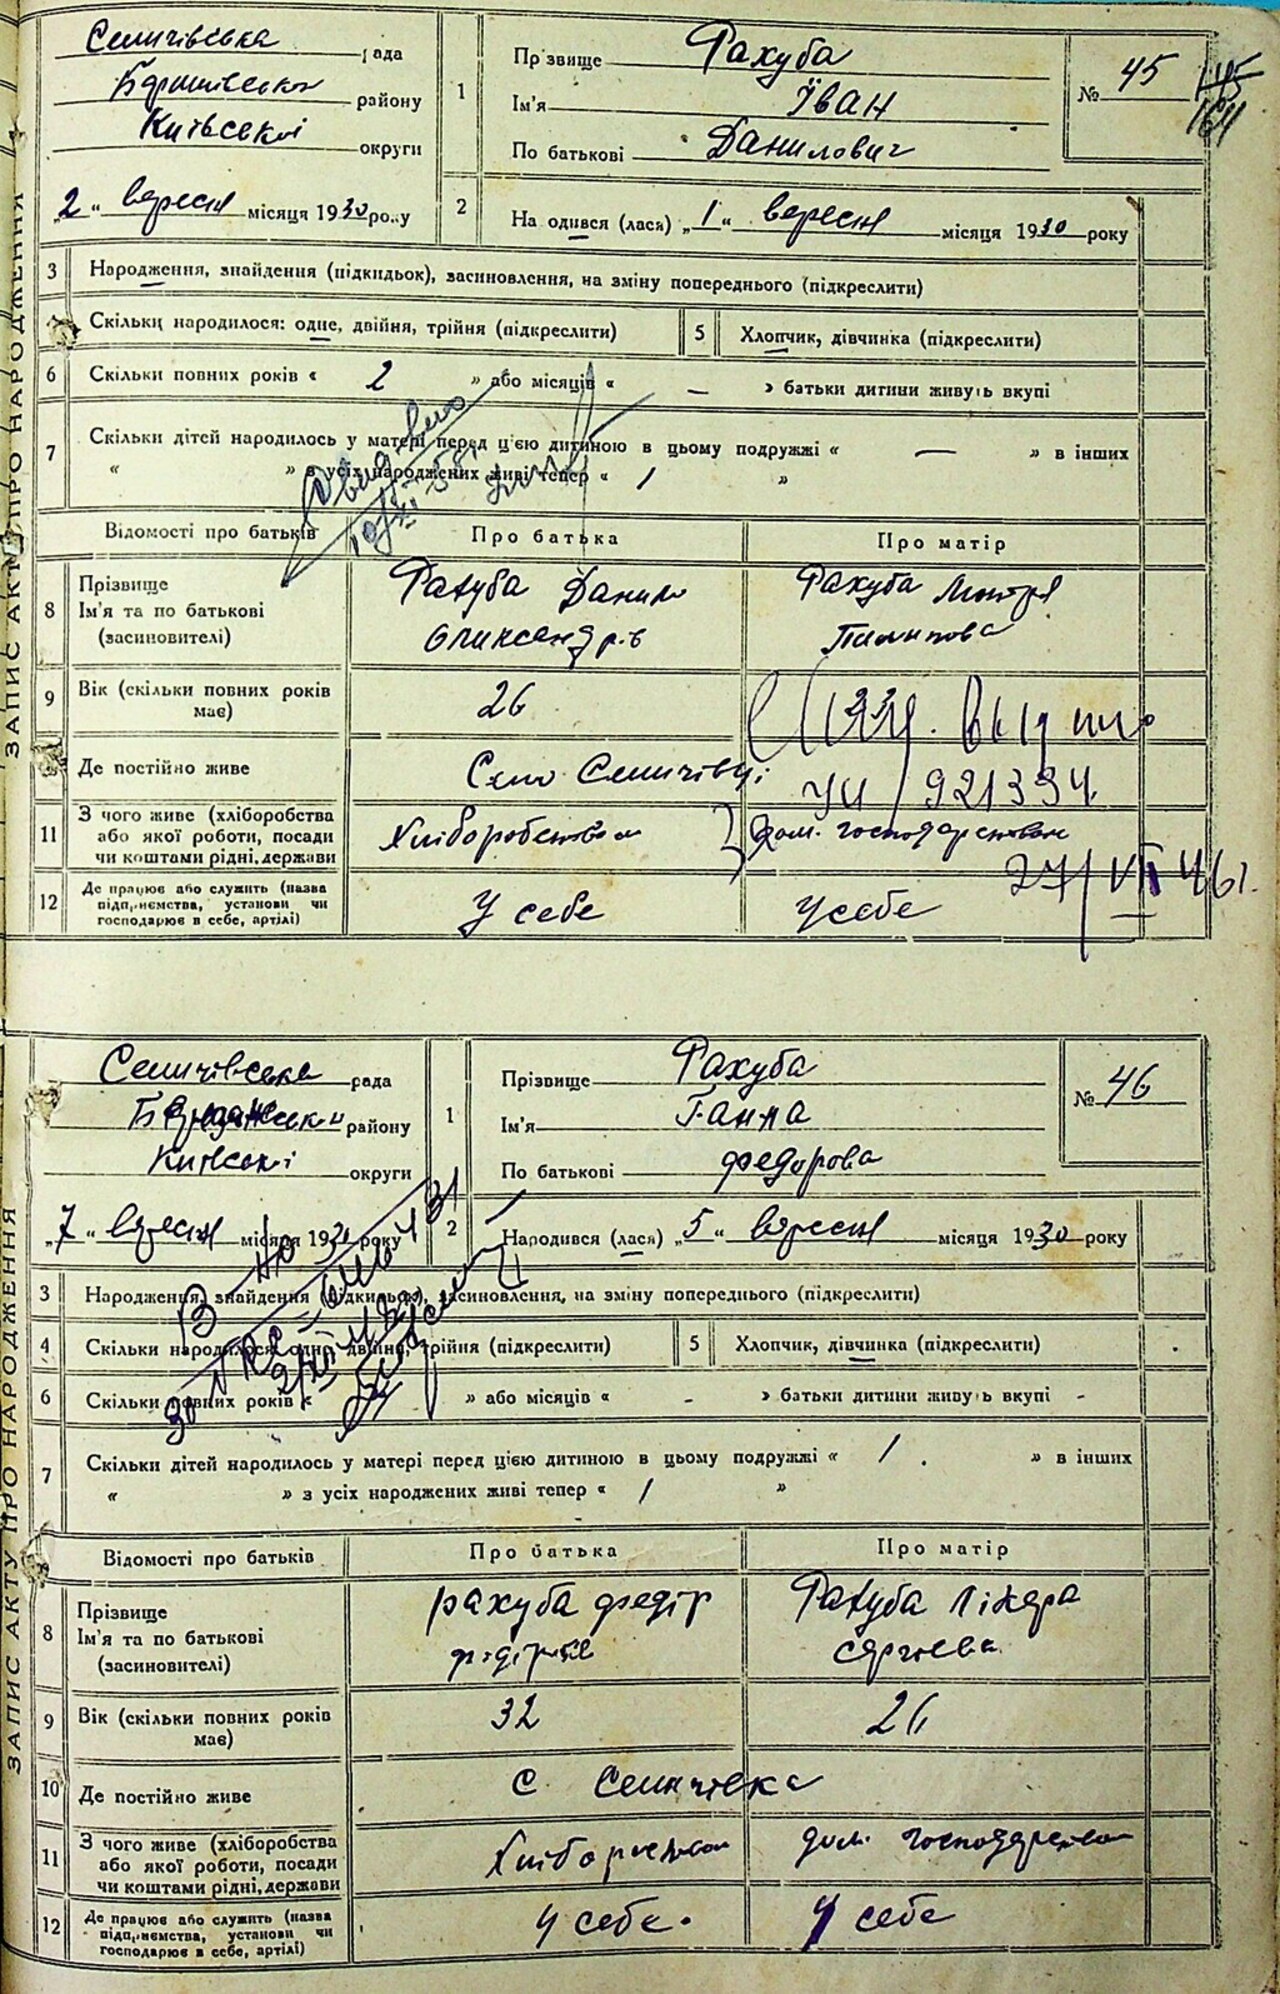 Селичівська рада
району
Київської округи
„2“ вересня місяця 1930 року
1 Прізвище Рахуба
Ім'я Іван
По батькові Данилович
№ 45
2 Народився (лася) „1“ вересня місяця 1930 року
3 Народження, знайдення (підкидьок), засиновлення, на зміну попереднього (підкреслити)
Скільки народилося: одне, двійня, трійня (підкреслити) 5 Хлопчик, дівчинка (підкреслити)
6 Скільки повних років « 2 » або місяців « — » батьки дитини живуть вкупі
7 Скільки дітей народилось у матері перед цією дитиною в цьому подружжі « — » в інших
« » з усіх народжених живі тепер « 1 »
Відомості про батьків Про батька Про матір
8 Прізвище
Ім'я та по батькові
(засиновителі)
Рахуба Данило
Олександрів
Рахуба
Пилипова
9 Вік (скільки повних років
має)
26
Де постійно живе Село Селичівці
УЦ 921334
11 З чого живе (хліборобства
або якої роботи, посади
чи коштами рідні, держави
Хліборобством дом. господарством
27/VII 46 г.
12 Де працює або служить (назва
підприємства, установи чи
господарює в себе, артілі)
У себе У себе
ЗАПИС АКТУ ПРО НАРОДЖЕННЯ
Селичівська рада
району
Київської округи
„7“ вересня місяця 1930 року
1 Прізвище Рахуба
Ім'я Ганна
По батькові Федорова
№ 46
2 Народився (лася) „5“ вересня місяця 1930 року
3 Народження, знайдення (підкидьок), засиновлення, на зміну попереднього (підкреслити)
4 Скільки народилося: одне, двійня, трійня (підкреслити) 5 Хлопчик, дівчинка (підкреслити)
6 Скільки повних років « » або місяців « - » батьки дитини живуть вкупі -
7 Скільки дітей народилось у матері перед цією дитиною в цьому подружжі « 1 » в інших
« » з усіх народжених живі тепер « 1 »
Відомості про батьків Про батька Про матір
8 Прізвище
Ім'я та по батькові
(засиновителі)
Рахуба Федір
Рахуба Лікера
Сергієва
9 Вік (скільки повних років
має)
32 26
10 Де постійно живе с. Селичівка
11 З чого живе (хліборобства
або якої роботи, посади
чи коштами рідні, держави
Хліборобством дом. господарством
12 Де працює або служить (назва
підприємства, установи чи
господарює в себе, артілі)
У себе. У себе
ЗАПИС АКТУ ПРО НАРОДЖЕННЯ